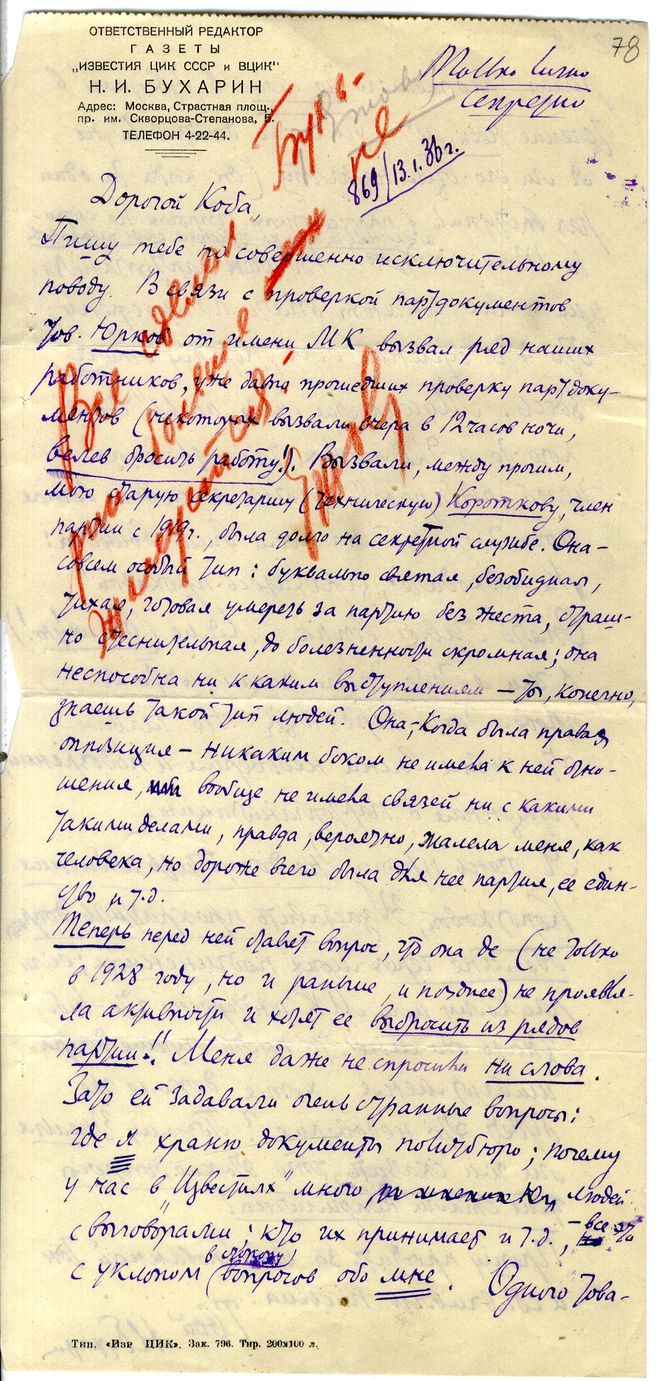 ОТВЕТСТВЕННЫЙ РЕДАКТОР
ГАЗЕТЫ
„ИЗВЕСТИЯ ЦИК СССР и ВЦИК"
Н. И. БУХАРИН
Адрес: Москва, Страстная площ.,
пр. им. Скворцова-Степанова, 5.
ТЕЛЕФОН 4-22-44.
78
Только лично
Секретно
869/13.I.36 г.
Дорогой Коба,
Пишу тебе по совершенно исключительному
поводу. В связи с проверкой партдокументов
тов. Юрков от имени МК вызвал ряд наших
работников, уже давно прошедших проверку партдоку-
ментов (некоторых вызвали вчера в 12 часов ночи,
велев бросить работу!). Вызвали, между прочим,
мою старую секретаршу (техническую) Короткову, член
партии с 1919 г., была долго на секретной службе. Она –
совсем особый тип: буквально святая, безобидная,
тихая, готовая умереть за партию без жеста, страш-
но стеснительная, до болезненности скромная; она
неспособна ни к каким выступлениям — ты, конечно,
знаешь такой тип людей. Она, когда была правая
оппозиция – никаким боком не имела к ней отно-
шения, вообще не имела связей ни с какими
такими делами, правда, вероятно, жалела меня, как
человека, но дороже всего была для нее партия, ее един-
ство и т.д.
Теперь перед ней ставят вопрос, что она де (не только
в 1928 году, но и раньше, и позднее) не проявля-
ла активности и хотят ее выбросить из рядов
партии!! Меня даже не спросили ни слова.
Зато ей задавали очень странные вопросы:
где я храню документы политбюро; почему
у нас в „Известиях" много людей
с выговорами; кто их принимает и т.д., – все это
с уклоном в сторону вопросов обо мне. Одного това-
Тип. «Изв ЦИК». Зак. 796. Тир. 200х100 л.